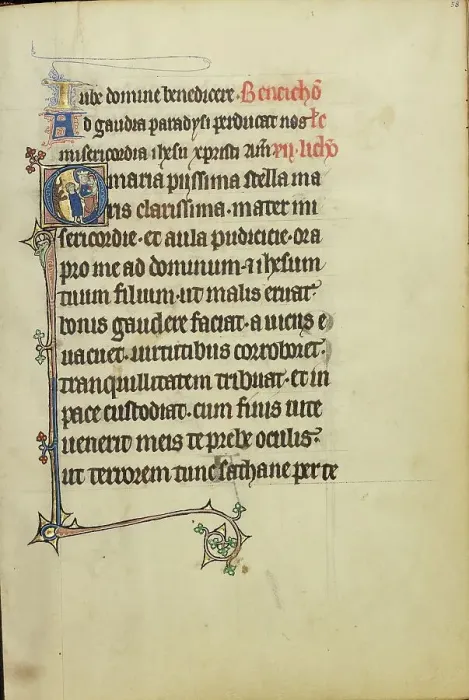 58
Iube domine benedicere. Benedictio
Ad gaudia paradysi perducat nos te
misericordia ihesu xpristi am̄ vii. lectio
O maria piissima stella ma
ris clarissima. mater mi
sericordie. et aula pudicicie. ora
pro me ad dominum. i ihesum
tuum filium. ut malis eruat.
bonis gaudere faciat. a uiciis e
uacuet. uirtutibus corroboret.
tranquillitatem tribuat. et in
pace custodiat. cum finis uite
uenerit meis te prebe oculis.
ut terrorem tunc sathane per te